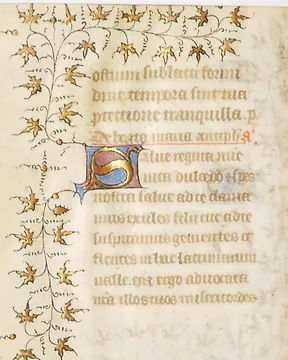 ostium sublata formi
dine tempora sint tua
ptectione tranquilla. p
De beata maria antipha
Salue regina mie
uita dulcedo & spes
nostra salue ad te clama
mus exules filii eue ad te
suspiramus gementes et
flentes in lac lacrimarum
ualle. eya ergo aduocata
nra illos tuos misericordes